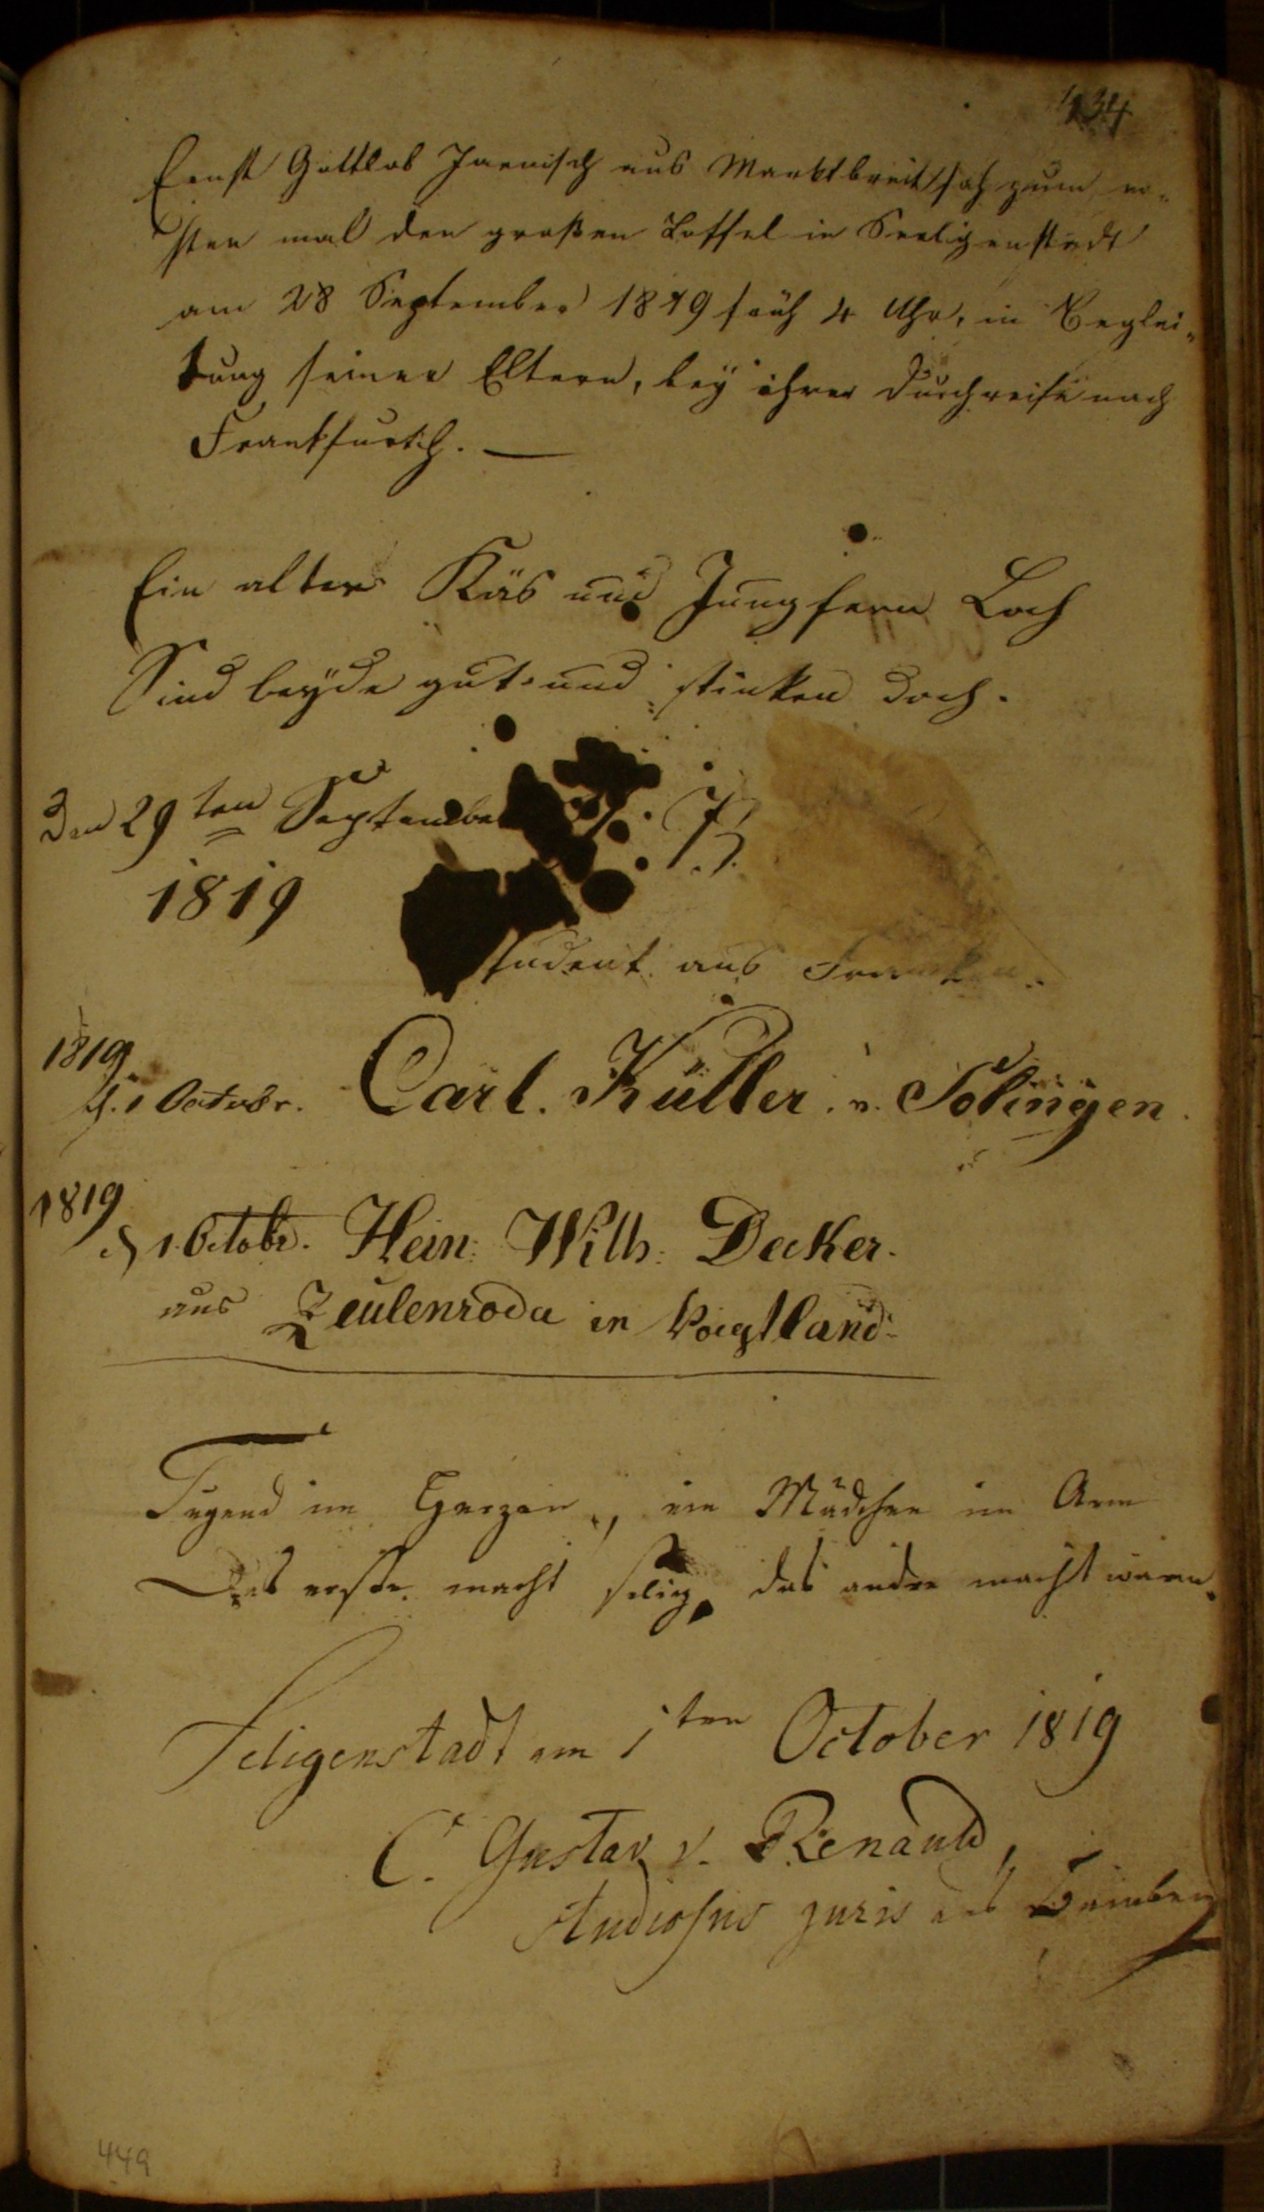 434
Ernst Gottlob Jaenisch aus Marktbreit sah zum er-
sten mal den großen Löffel in Seeligenstadt
am 28 September 1819 früh 4 Uhr, in Beglei-
tung seiner Eltern, bey ihrer Durchreise nach
Frankfurth. —
Ein alter Käs und Jungfern Loch
Sind beyde gut und stinken doch.
Den 29ten September
1819
Student aus Franken.
1819
d. 1 Octobr. Carl. Küller. v. Solingen.
1819
d 1. Octobr. Hein: Wilh: Decker.
aus Zeulenroda in Voigtland.
Tugend im Herzen, ein Mädchen im Arm
Das erste macht selig, das andre macht warm.
Seligenstadt am 1ten October 1819
C. Gustav v. Renauld,
Studiosus juris aus Bamberg
449